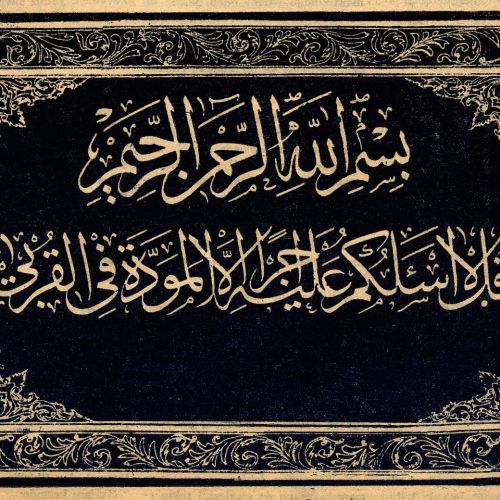 بِسْمِ اللَّهِ الرَّحْمَنِ الرَّحِيمِ
قل لا اسئلكم عليه اجرا الا المودة في القربى